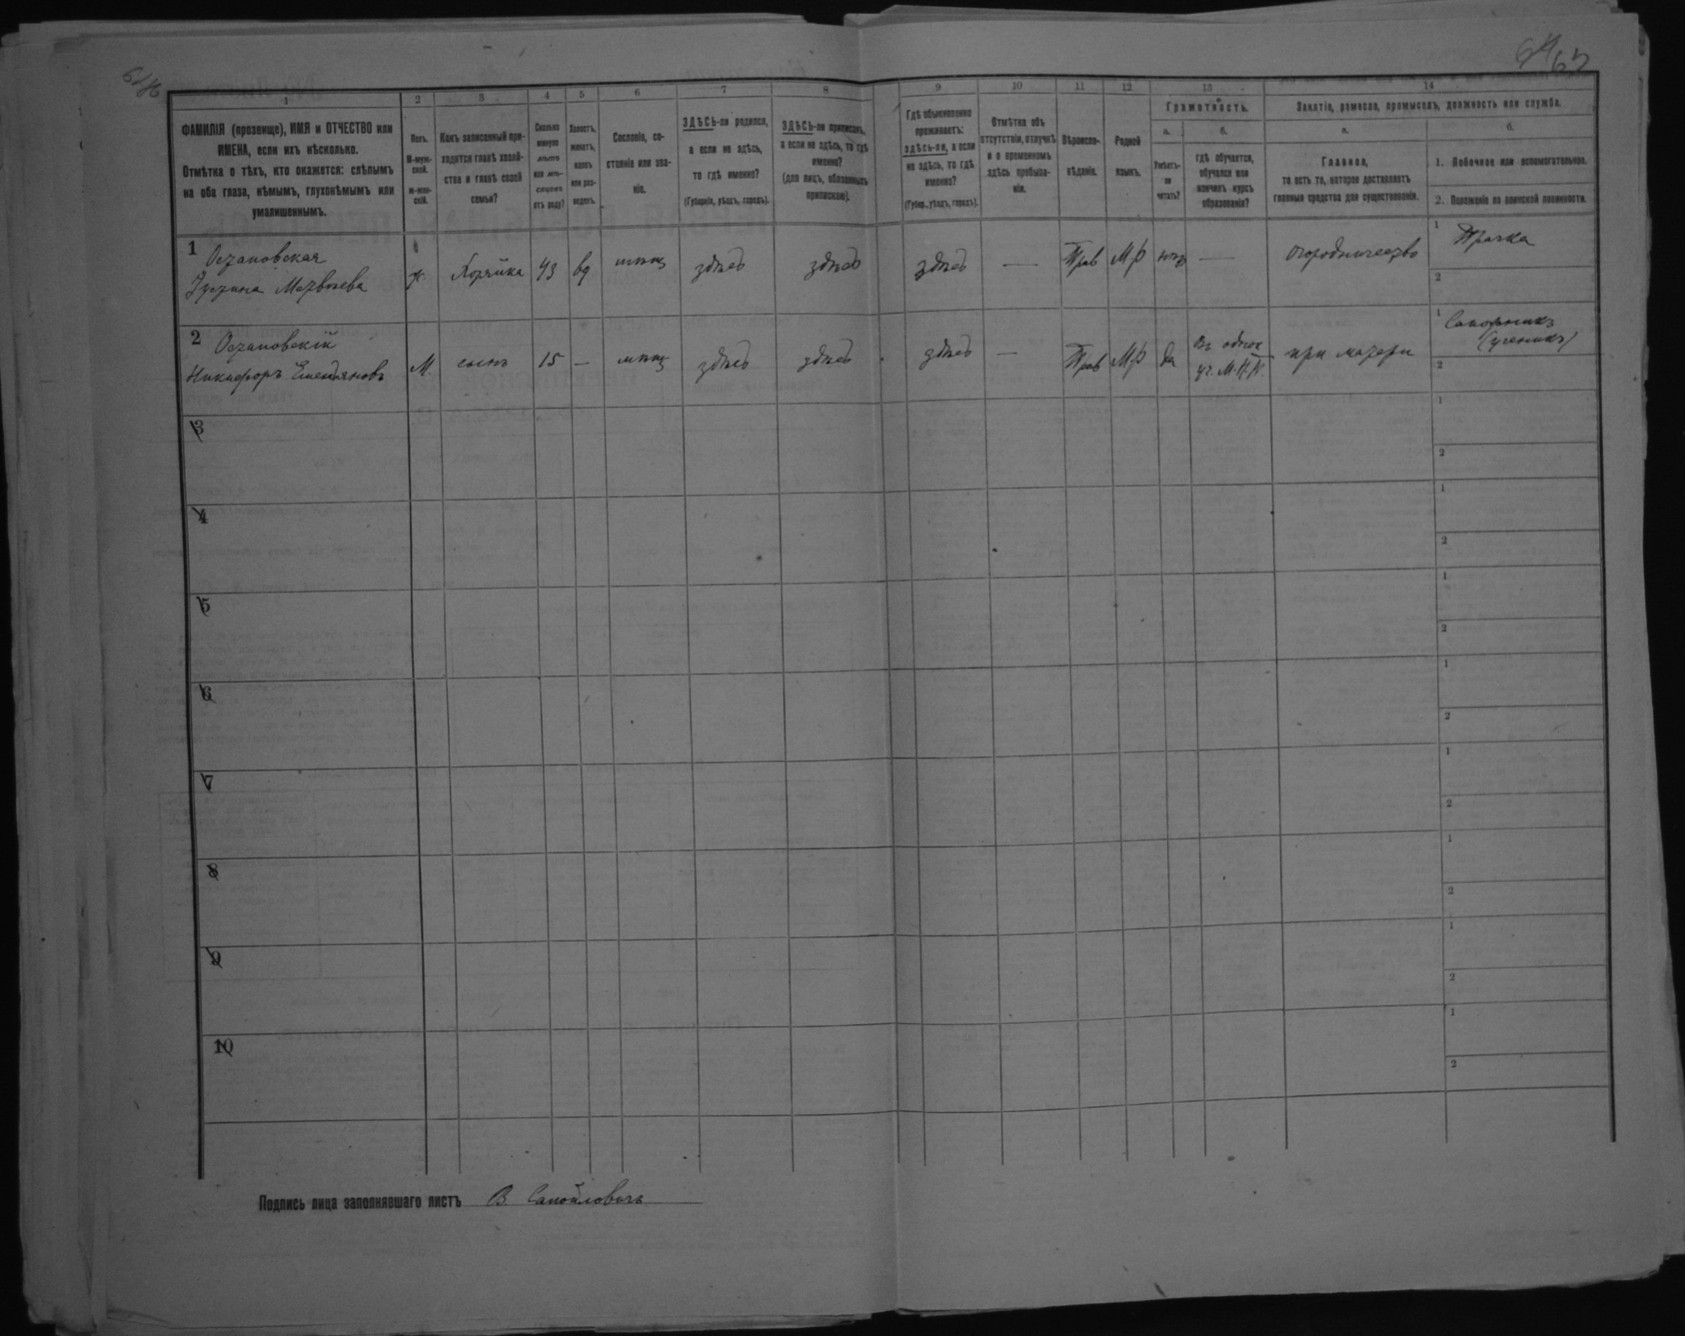 1 2 3 4 5 6 7 8 9 10 11 12 13 14
ФАМИЛІЯ (прозвище), ИМЯ и ОТЧЕСТВО или
ИМЕНА, если ихъ нѣсколько.
Отмѣтка о тѣхъ, кто окажется: слѣпымъ
на оба глаза, нѣмымъ, глухонѣмымъ или
умалишеннымъ.
Полъ.
М-муж-
ской.
ж-жен-
скій.
Какъ записанный при-
ходится главѣ хозяй-
ства и главѣ своей
семьи?
Сколько
минуло
лѣтъ
или мѣ-
сяцевъ
отъ роду?
Холостъ,
женатъ,
вдовъ
или раз-
веденъ.
Сословіе, со-
стояніе или зва-
ніе.
ЗДѢСЬ-ли родился,
а если не здѣсь,
то гдѣ именно?
(Губернія, уѣздъ, городъ).
ЗДѢСЬ-ли приписанъ,
а если не здѣсь, то гдѣ
именно?
(для лицъ, обязанныхъ
припискою).
Гдѣ обыкновенно
проживаетъ:
здѣсь-ли, а если
не здѣсь, то гдѣ
именно?
(Губер., уѣздъ, городъ).
Отмѣтка объ
отсутствіи, отлучкѣ
и о временномъ
здѣсь пребыва-
ніи.
Вѣроиспо-
вѣданіе.
Родной
языкъ.
Грамотность.
а.
Умѣетъ-
ли
читать?
б.
гдѣ обучается,
обучался или
кончилъ курсъ
образованія?
Занятіе, ремесло, промыселъ, должность или служба.
а.
Главное,
то есть то, которое доставляетъ
главныя средства для существованія.
б.
1. Побочное или вспомогательное.
2. Положеніе по воинской повинности.
1 Остановская
Матвѣева ж. Хозяйка 43 вд мѣщ здѣсь здѣсь здѣсь — Прав МР нѣтъ — огородничество
1 Прачка
2
2 Остановскій
Никифоръ Емельяновъ М. сынъ 15 — мѣщ здѣсь здѣсь здѣсь — Прав МР да при матери
1 Сапожникъ
(ученикъ)
2
3
1
2
4
1
2
5
1
2
6
1
2
7
1
2
8
1
2
9
1
2
10
1
2
Подпись лица заполнявшаго листъ В